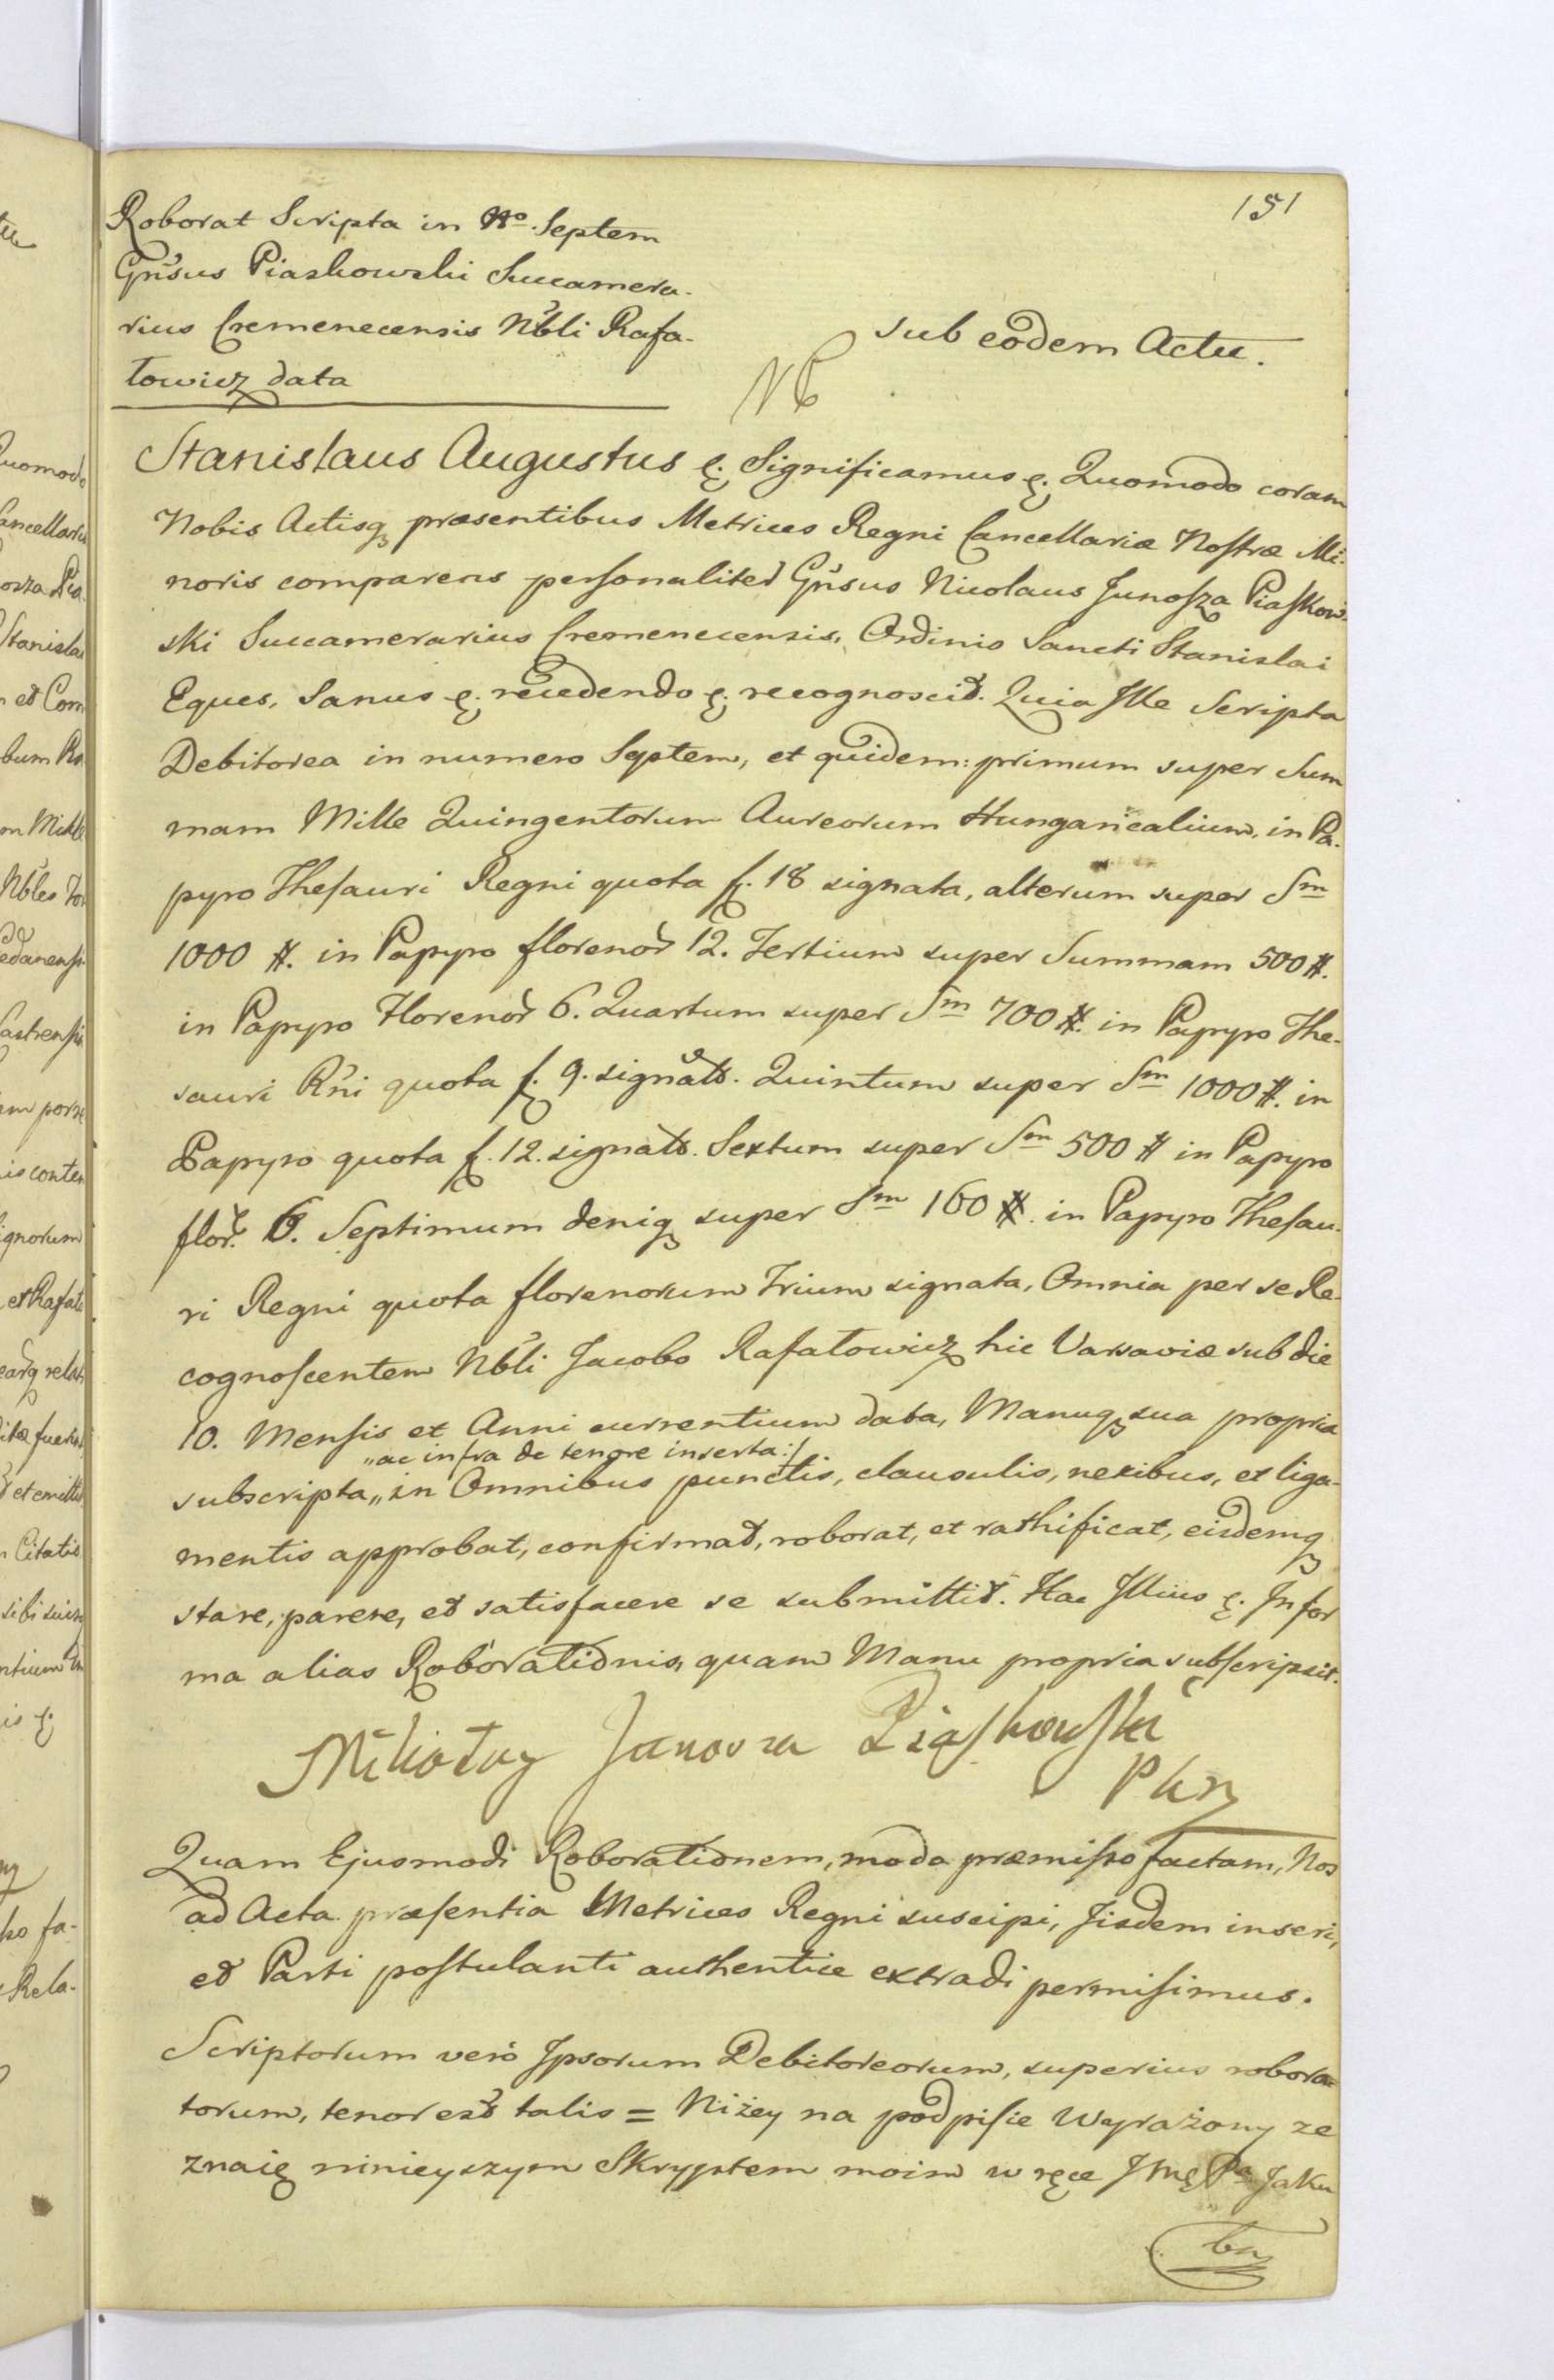 151
Roborat Scripta in Nº. Septem
Gnsus Piaskowski Succamera-
rius Cremenecensis Nbli Rafa-
łowicz data
Sub eodem Actu.
NB
Stanislaus Augustus &. Significamus &. Quomodo coram
Nobis Actisq præsentibus Metrices Regni Cancellariæ Nostræ Mi-
noris comparens personaliter Gnsus Nicolaus Junosza Piaskow-
ski Succamerarius Cremenecensis, Ordinis Sancti Stanislai
Eques, Sanus &. recedendo &. recognoscit. Quia Ille Scripta
Debitorea in numero Septem, et quidem: primum super Sum
mam Mille Quingentorum Aureorum Hungaricalium, in Pa-
pyro Thesauri Regni quota f. 18 signata, alterum super Sm
1000 #. in Papyro florenor 12. Tertium super Summam 500 #.
in Papyro Florenor 6. Quartum super Sm 700 #. in Papyro The-
sauri Rni quota f. 9. signato. Quintum super Sm 1000 #. in
Papyro quota f. 12. signato. Sextum super Sm 500 # in Papyro
flor. 6. Septimum deniq super Sm 160 #. in Papyro Thesau-
ri Regni quota florenorum Trium signata, Omnia per se Re-
cognoscentem Nbli Jacobo Rafałowicz hic Varsaviæ sub die
10. Mensis et Anni currentium data, Manuq sua propria
„ac infra de tenore inserta:/
subscripta„ in Omnibus punctis, clausulis, nexibus, et liga-
mentis approbat, confirmat, roborat, et rathificat, eisdemq
stare, parere, et satisfacere se submittit. Hac Illius &. In for
ma alias Roborationis, quam Manu propria subscripsit.
Mikołay Junosza Piaskowski
PKrz
Quam Ejusmodi Roborationem, modo præmisso factam, Nos
ad Acta præsentia Metrices Regni suscipi, Iisdem inseri,
et Parti postulanti authentice extradi permisimus.
Scriptorum vero Ipsorum Debitoreorum, superius robora-
torum, tenor est talis = Niżey na podpisie Wyrażony ze
znaię ninieyszym Skryptem moim w ręce Jmę Pa Jaku
ba